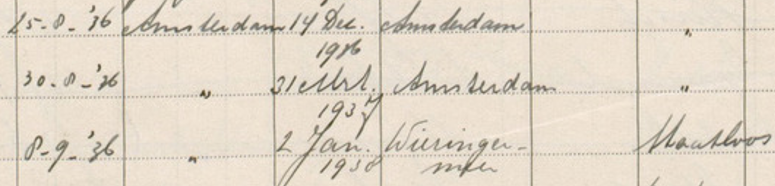 25-8-'36 Amsterdam 14 Dec. Amsterdam "
1916
30-8-'36 " 31 Mrt. Amsterdam "
1937
8-9-'36 " 2 Jan. Wieringer-
1938 meer